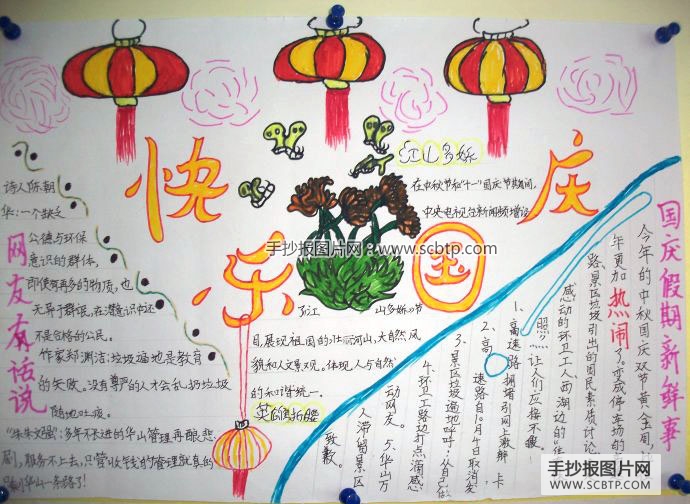 快
乐
国
庆
江山多娇
在中秋节和"十一"国庆节期间,
中央电视台新闻频道增设
了江
山多娇节
目,展现祖国的壮丽河山,大自然风
貌和人文景观。体现人与自然
的和谐统一。
网友有话说
诗人陈朝
华:一个缺乏
公德与环保
意识的群体,
即使有再多的物质,也
无异于群氓,在潜意识中还
不是合格的公民。
作家郑渊洁:垃圾遍地是教育
的失败。没有尊严的人才会乱扔垃圾
随地吐痰。
多年不长进的华山管理再酿悲
剧,服务不上去,只管收钱的管理就真的
国庆假期新鲜事
今年的中秋国庆双节黄金周,
年更加热闹了。变成停车场的
路、景区垃圾引出的国民素质讨论
感动的环卫工人、西湖边的
照,让人们应接不暇。
1、高速路拥堵引网上数解
2、高
速路自
3、景区垃圾遍地
4、环卫工路边打点滴感
动网友。
5、华山万
人滞留景区
致歉。
手抄报图片网:www.scbtp.com
手抄报图片网
WWW.SCBTP.COM